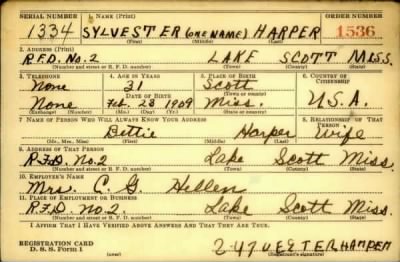 SERIAL NUMBER 1. NAME (Print) ORDER NUMBER
1334 SYLVESTER (ONE NAME) HARPER 1536
(First) (Middle) (Last)
2. ADDRESS (Print)
R.F.D. No. 2 LAKE SCOTT MISS.
(Number and street or R. F. D. number) (Town) (County) (State)
3. TELEPHONE 4. AGE IN YEARS 5. PLACE OF BIRTH 6. COUNTRY OF CITIZENSHIP
None 31 Scott
DATE OF BIRTH (Town or county)
None Feb. 23 1909 Miss. U.S.A.
(Exchange) (Number) (Mo.) (Day) (Yr.) (State or country)
7. NAME OF PERSON WHO WILL ALWAYS KNOW YOUR ADDRESS 8. RELATIONSHIP OF THAT PERSON
Dettie Harper Wife
(Mr., Mrs., Miss) (First) (Middle) (Last)
9. ADDRESS OF THAT PERSON
R.F.D. No. 2 Lake Scott Miss.
(Number and street or R. F. D. number) (Town) (County) (State)
10. EMPLOYER'S NAME
Mrs. C. G. Hellen
11. PLACE OF EMPLOYMENT OR BUSINESS
R.F.D. No. 2 Lake Scott Miss.
(Number and street or R. F. D. number) (Town) (County) (State)
I AFFIRM THAT I HAVE VERIFIED ABOVE ANSWERS AND THAT THEY ARE TRUE.
REGISTRATION CARD
D. S. S. Form 1 (over) (Registrant's signature)